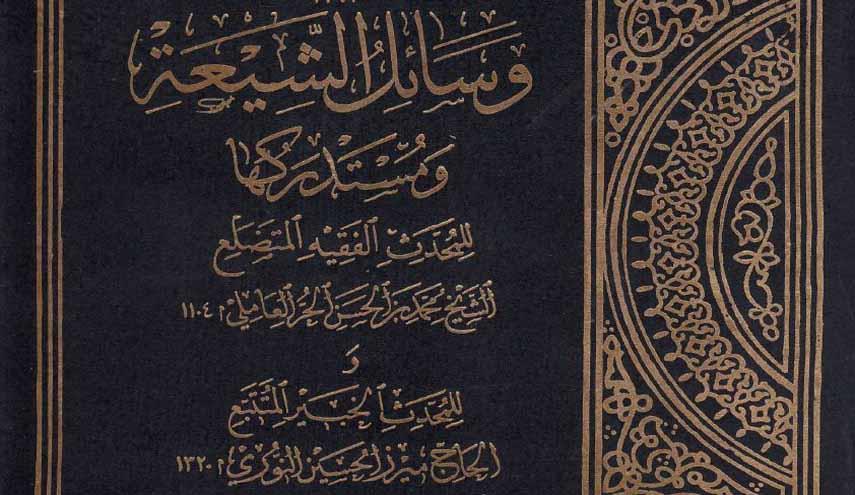 وَسَائِلُ الشِّيعَةِ
وَمُسْتَدْرَكُهَا
لِلمُحَدِّثِ الفَقِيهِ المُتَضَلِّعِ
الشَّيْخِ مُحَمَّد بن الحَسَن الحُرِّ العَامِلِيِّ م ١١٠٤
وَ
لِلمُحَدِّثِ الخَبِيرِ المُتَتَبِّعِ
الحَاجِّ مِيرزَا حُسَيْن النُّورِيِّ م ١٣٢٠